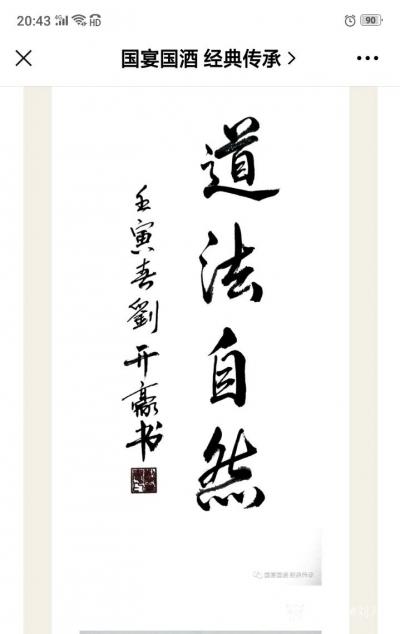 20:43
4G
HD
90
国宴国酒 经典传承
道法自然
壬寅春劉开豪书
国宴国酒 经典传承